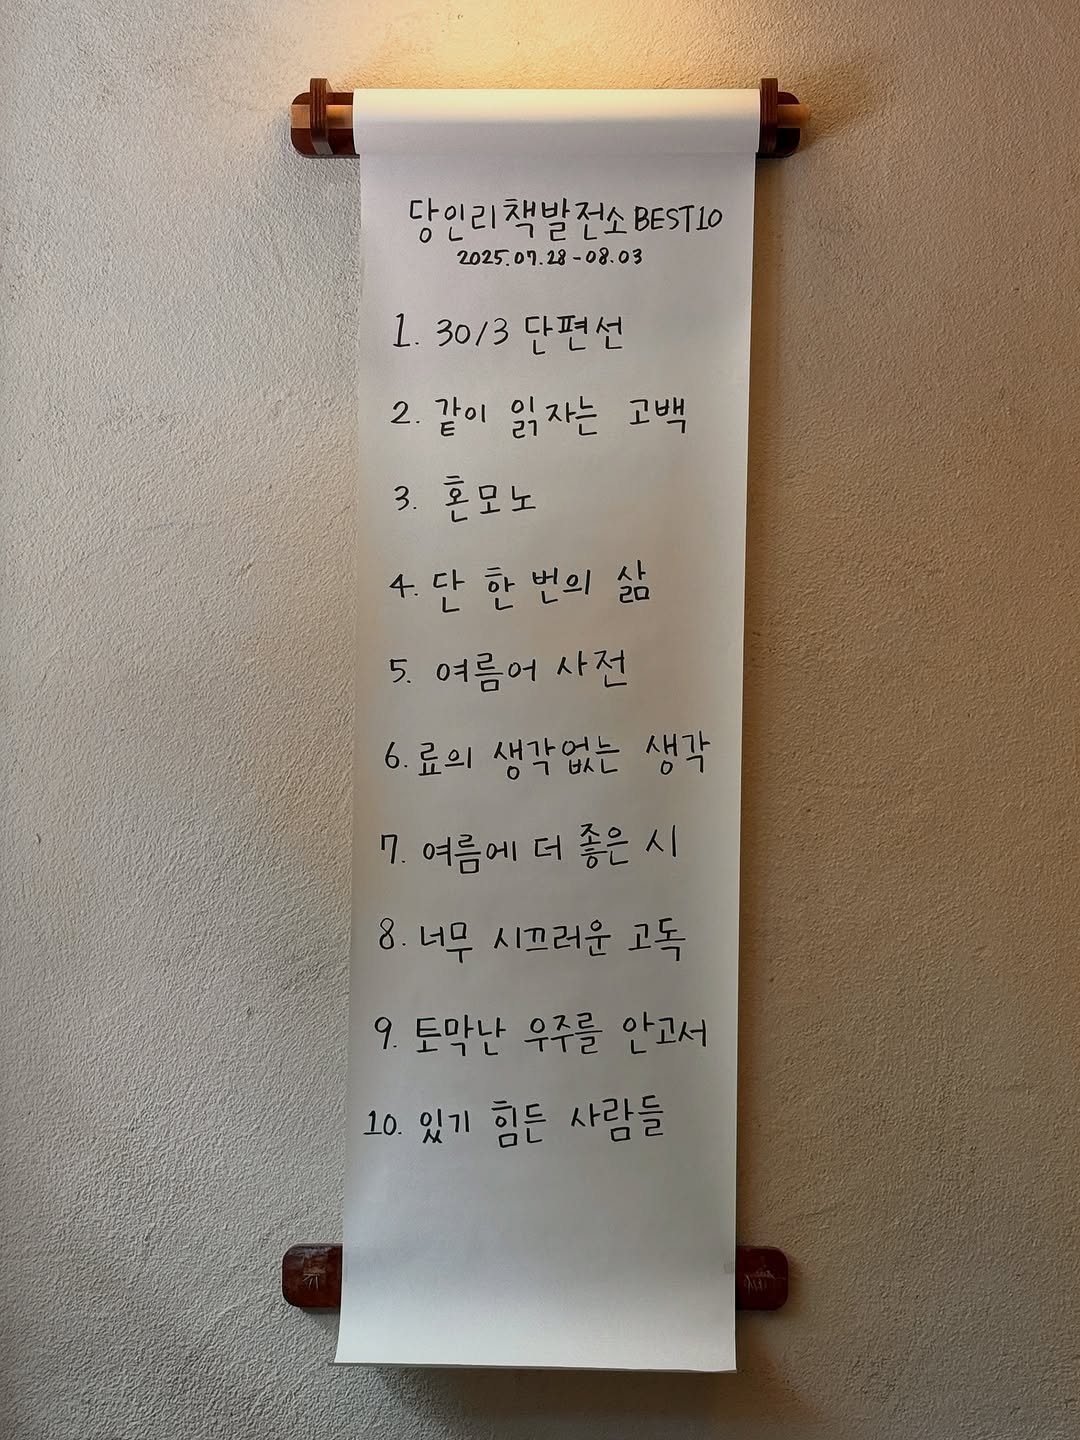 당인리책발전소 BEST10
2025.07.28-08.03
1. 30/3 단편선
2. 같이 읽자는 고백
3. 혼모노
4. 단 한 번의 삶
5. 여름어 사전
6. 료의 생각없는 생각
7. 여름에 더 좋은 시
8. 너무 시끄러운 고독
9. 토막난 우주를 안고서
10. 있기 힘든 사람들